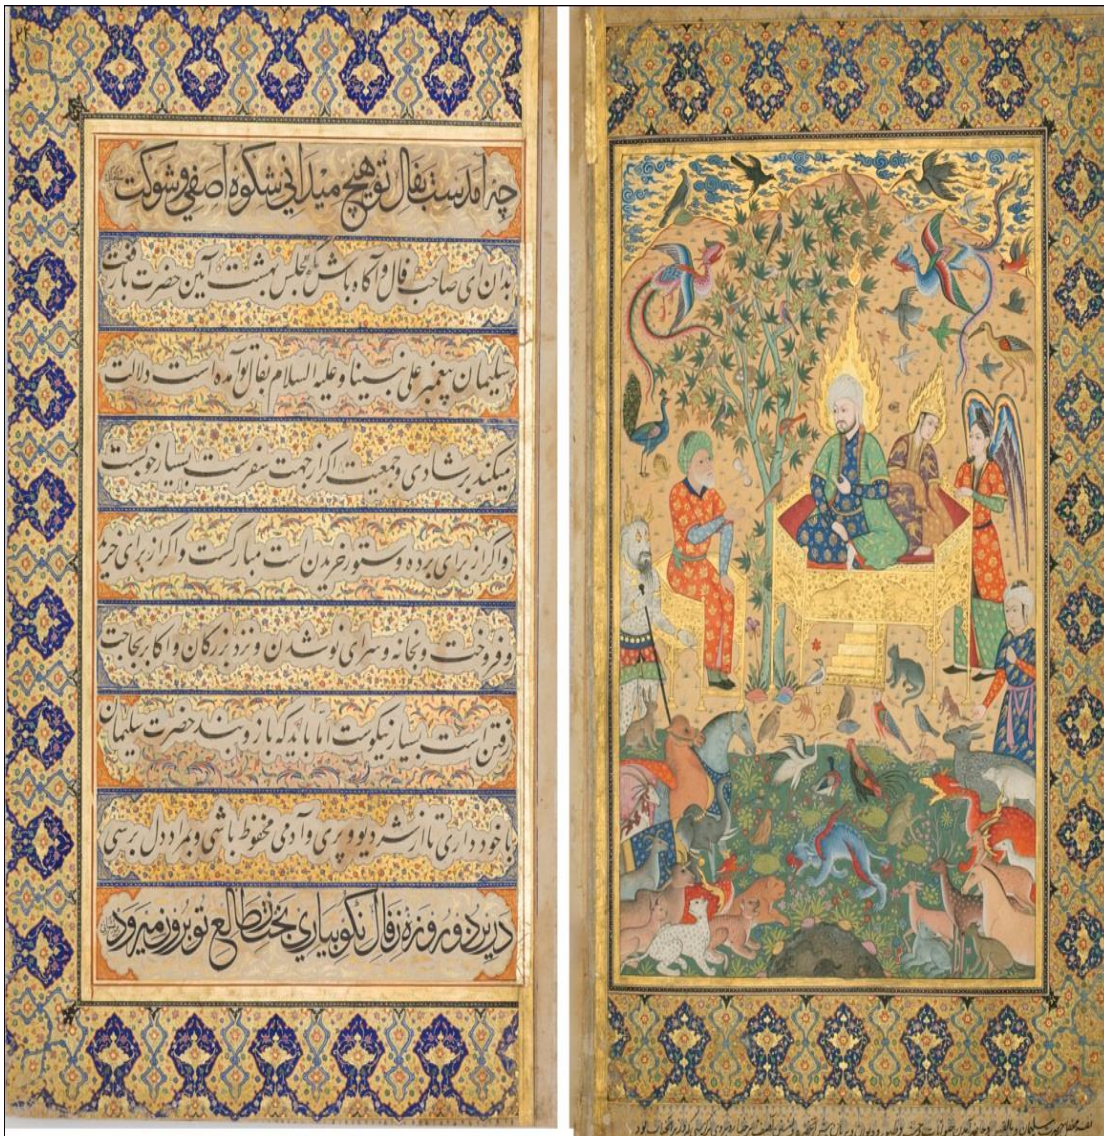 ۲۴
چه آمدست بفال تو هیچ میدانی شکوه آصفی و شوکت
بدان ای صاحب فال و آکاه باش که مجلس بهشت آیین حضرت با رفعت
سلیمان پیغمبر علی نبینا و علیه السلام بفال تو آمده است دلالت
میکند بر شادی و جمعیت اکر از جهت سفرست بسیار خوبست
و اکر از برای برده و ستور خریدن است مبارکست و اکر از برای خرید
و فروخت و بخانه و سرای نو شدن و نزد بزرکان و اکابر بحاجت
رفتن است بسیار نیکوست اما باید که بازوبند حضرت سلیمان
با خود داری تا از شر دیو و پری و آدمی محفوظ باشی و بمراد دل برسی
درین دو روزه ز فال نکو بیاری بخت ز طالع تو بروز میرود
حضرت سلیمان و بالقیس و حاضر آمدن حیوانات